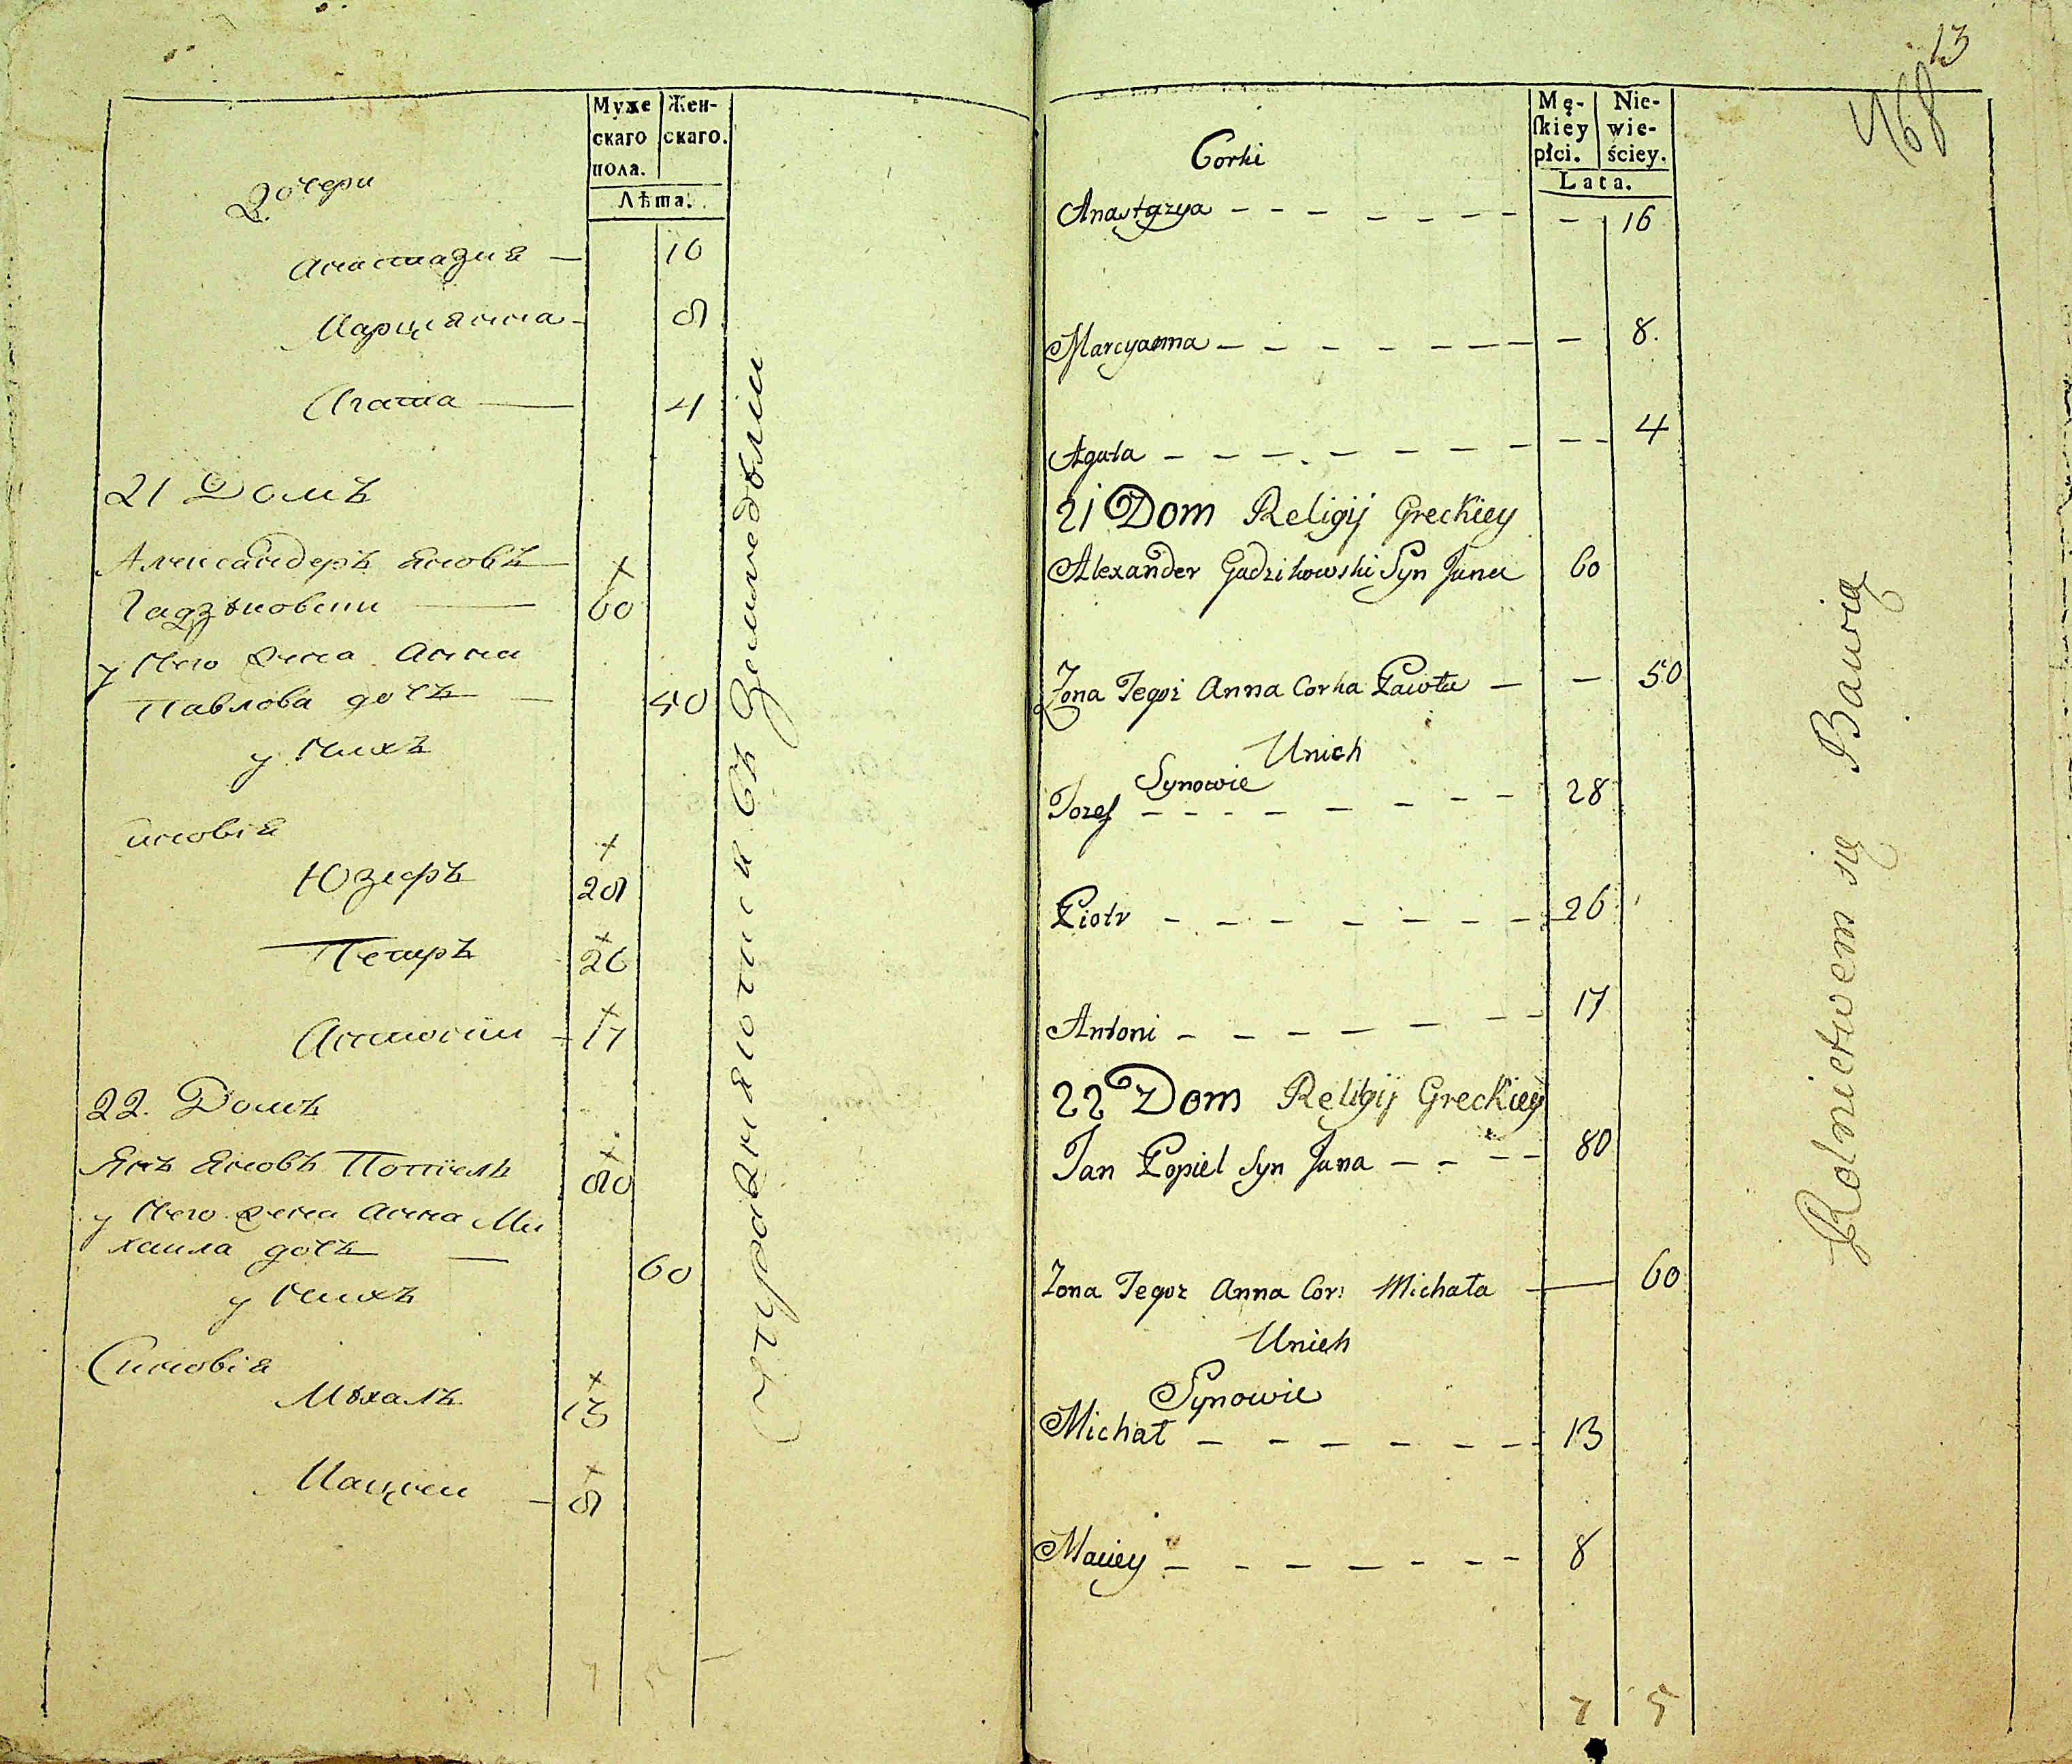 Муже
скаго
пола.
Жен-
скаго.
Лѣта.
Дочери
Анастазия — 16
Марцианна - 8
Агата — 4
21 Домъ
Александеръ Яновъ —
Гадзѣковски — 60
у Него жена Анна
Павлова дочь — 50
у Нихъ
синовія
Юзефъ 28
Петръ 26
Антоній - 17
22. Домъ
Янъ Яновъ Попіель 80
у Него жена Анна Ми
хаила дочь — 60
у Нихъ
Синовія
Мѣхалъ 13
Мацѣи - 8
7 5
Упражняютися въ Земледѣліи
13
468
Mę-
skiey
płci.
Nie-
wie-
ściey.
Lata.
Corki
Anastazya - - - - - - - - 16
Marcyanna - - - - - - - - 8.
Agata - - - - - - - - - 4
21 Dom Religij Greckiey
Alexander Gadzikowski Syn Jana 60
Zona Tegoż Anna Corka Pawła - - 50
Unich
Synowie
Jozef - - - - - - - - 28
Piotr - - - - - - - - 26
Antoni - - - - - - - 17
22 Dom Religij Greckiey
Jan Popiel Syn Jana - - - - 80
Zona Tegoz Anna Cor: Michała — 60
Unich
Synowie
Michał - - - - - - 13
Maciey - - - - - - - 8
7 5
Rolnictwem się Bawią